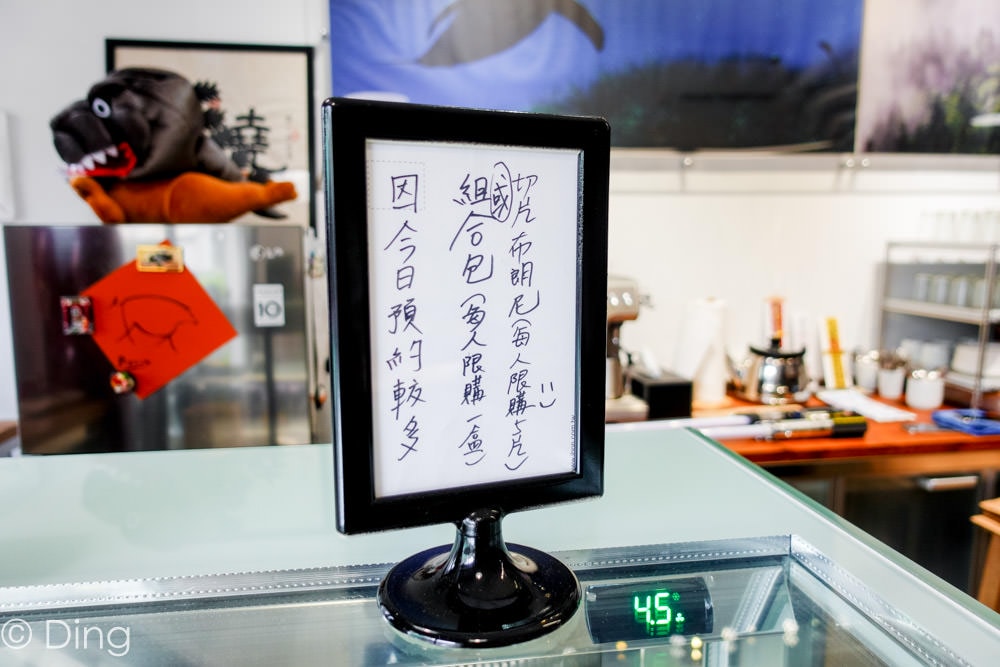 因今日預約較多
組合包(每人限購一盒)
或
切片布朗尼(每人限購七片)
10
4.5
© Ding